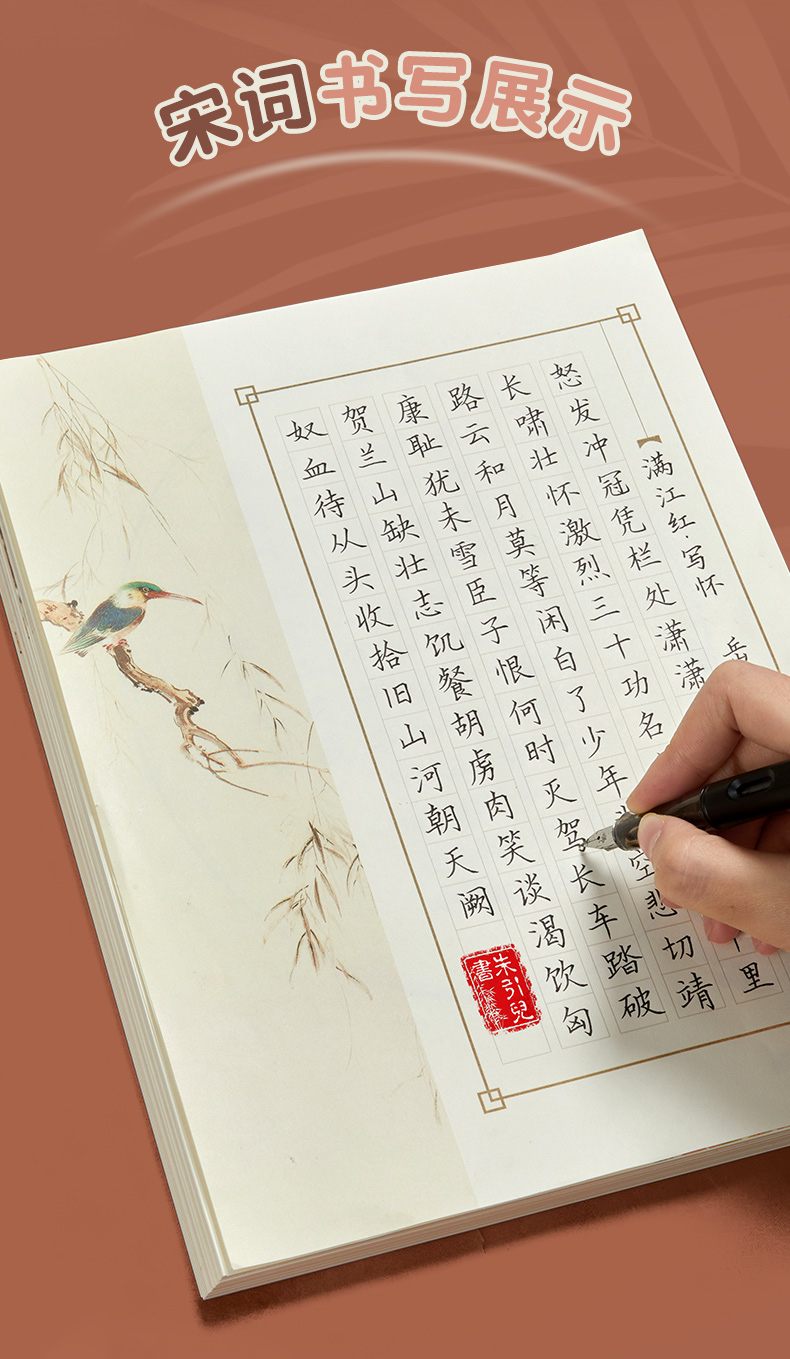 宋词书写展示
满江红·写怀
岳
怒发冲冠凭栏处潇潇
长啸壮怀激烈三十功名 里
路云和月莫等闲白了少年 空悲切靖
康耻犹未雪臣子恨何时灭驾长车踏破
贺兰山缺壮志饥餐胡虏肉笑谈渴饮匈
奴血待从头收拾旧山河朝天阙
朱引兒
書